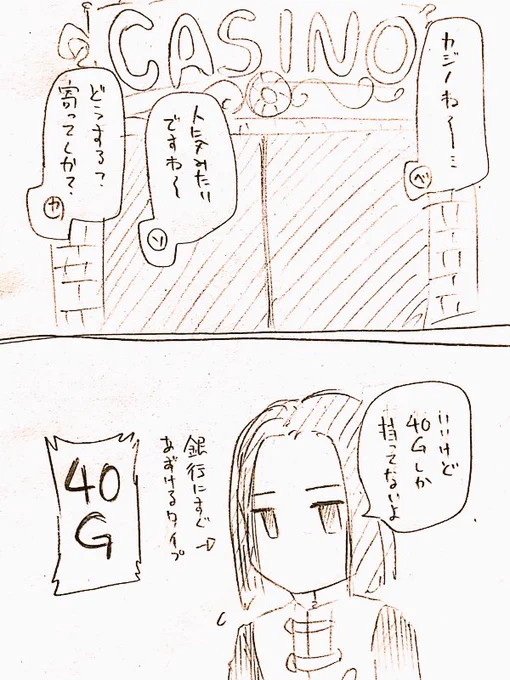 CASINO
カジノねー…
ベ
人気みたい
ですわ〜
ソ
どうする?
寄ってくか?
ヤ
いいけど
40Gしか
持ってないよ
銀行にすぐ
あずけるタイプ
40
G